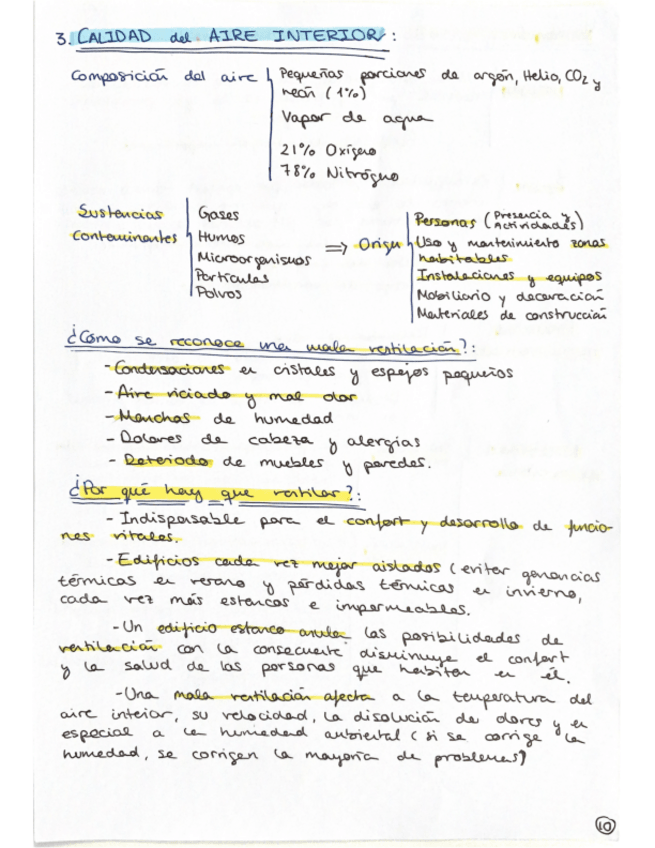 3. CALIDAD del AIRE INTERIOR:
Composición del aire
Pequeñas porciones de argón, Helio, CO2 y
neón (1%)
Vapor de agua
21% Oxígeno
78% Nitrógeno
Sustancias
Contaminantes
Gases
Humos
Microorganismos
Partículas
Polvos
=> Origen
Personas (Presencia y
Actividades)
Uso y mantenimiento zonas
habitables
Instalaciones y equipos
Mobiliario y decoración
Materiales de construcción
¿Cómo se reconoce una mala ventilación?:
- Condensaciones en cristales y espejos pequeños
- Aire viciado y mal olor
- Manchas de humedad
- Dolores de cabeza y alergias
- Deteriodo de muebles y paredes.
¿Por qué hay que ventilar?:
- Indispensable para el confort y desarrollo de funcio-
nes vitales.
- Edificios cada vez mejor aislados (evitar ganancias
térmicas en verano y pérdidas térmicas en invierno,
cada vez más estancos e impermeables.
- Un edificio estanco anula las posibilidades de
ventilación con la consecuente disminuye el confort
y la salud de las personas que habitan en él.
- Una mala ventilación afecta a la temperatura del
aire interior, su velocidad, la disolución de olores y en
especial a la humedad ambiental (si se corrige la
humedad, se corrigen la mayoría de problemas)
10